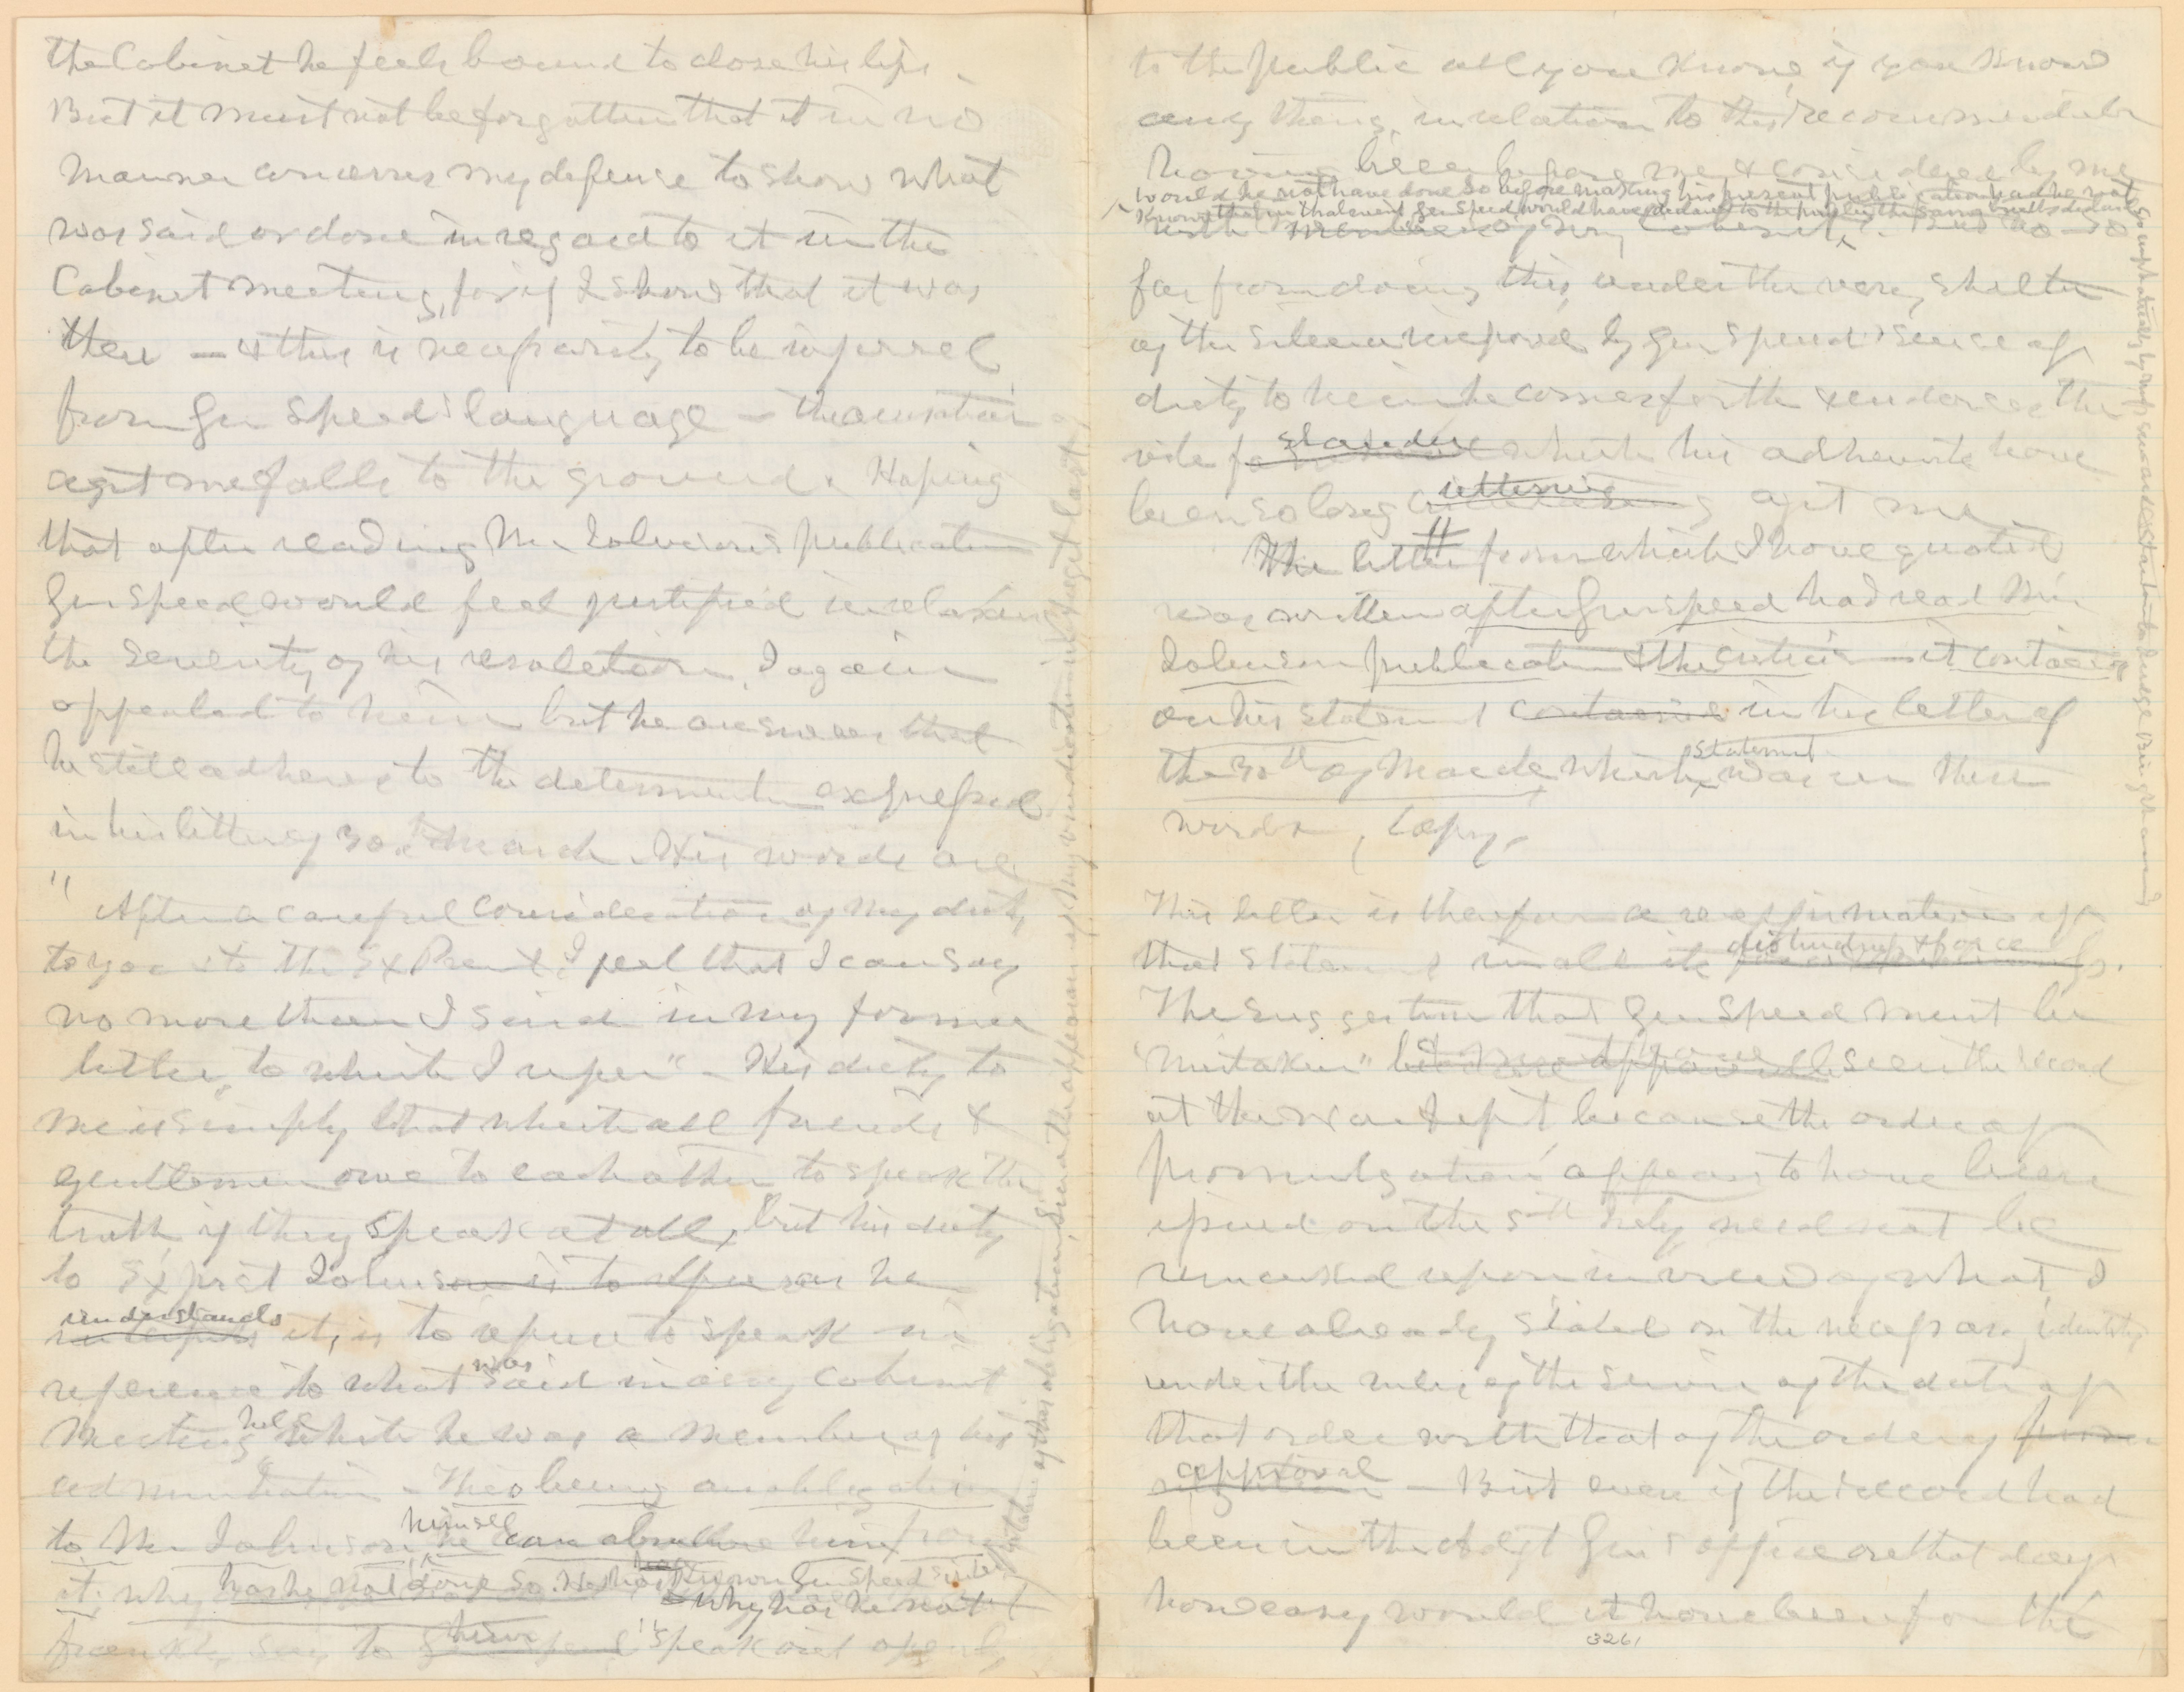 the Cabinet he feels bound to close his lips.
But it must not be forgotten that it in no
manner concerns my defense to show what
was said or done in regard to it in the
Cabinet meeting, for if I show that it was
then — & this is necessarily to be inferred
from Gen Speed's language — the accusation
agst me falls to the ground. Hoping
that after reading Mr Johnson's publication
Gen Speed would feel justified in relaxing
the severity of his resolution, I again
appealed to him but he answers that
he still adheres to the determination expressed
in his letter of 30th March. His words are
" After a careful consideration of my duty
to you & to the Ex Presnt, I feel that I can say
no more than I said in my former
letter, to which I refer" — His duty to
me is simply that which all friends &
gentlemen owe to each other to speak the
truth, if they speak at all, but his duty
to Ex Prest Johnson is to refuse as he
understands
it, is to refuse to speak in
reference to what was said in any Cabinet
meeting held while he was a member of his
administration — This being an obligation
to Mr Johnson he himself can absolve him from
it, why has he not done so. He has known Gen Speed's
why has he not
frankly say to him "Speak out openly
agst last
my vindication
the appearance of
of this obligation, since
to the public all you know, if you know
any thing, in relation to this recommendation
having been before me & considered by me
would he not have done so before making his present publication had he not
known that in that event Gen Speed would have declared to the public the same
with members of my Cabinet. But no — so
far from doing this, under the very shelter
of the silence imposed by Gen Speed's sense of
duty to him he comes forth & endorses the
vile slander which his adherents have
been so long uttering agst me.
The letter from which I have quoted
was written after Gen Speed had read Mr
Johnson publication & the criticism it contains
on his statemnt contained in his letter of
the 30th of March, which statement was in these
words, (Copy,
This letter is therefore a reaffirmation of
that statemnt in all its distinctness & force
The suggestion that Gen Speed must be
"mistaken" seen the record
at the War Dept, because the order of
promulgation appears to have been
issued on the 5th July need not be
remarked upon in view of what I
have already stated on the necessary identity
under the rules of the service of the date of
that order with that of the order of
approval — But even if the record had
been in the Adjt Gen's office on that day
how easy would it have been for the
3261